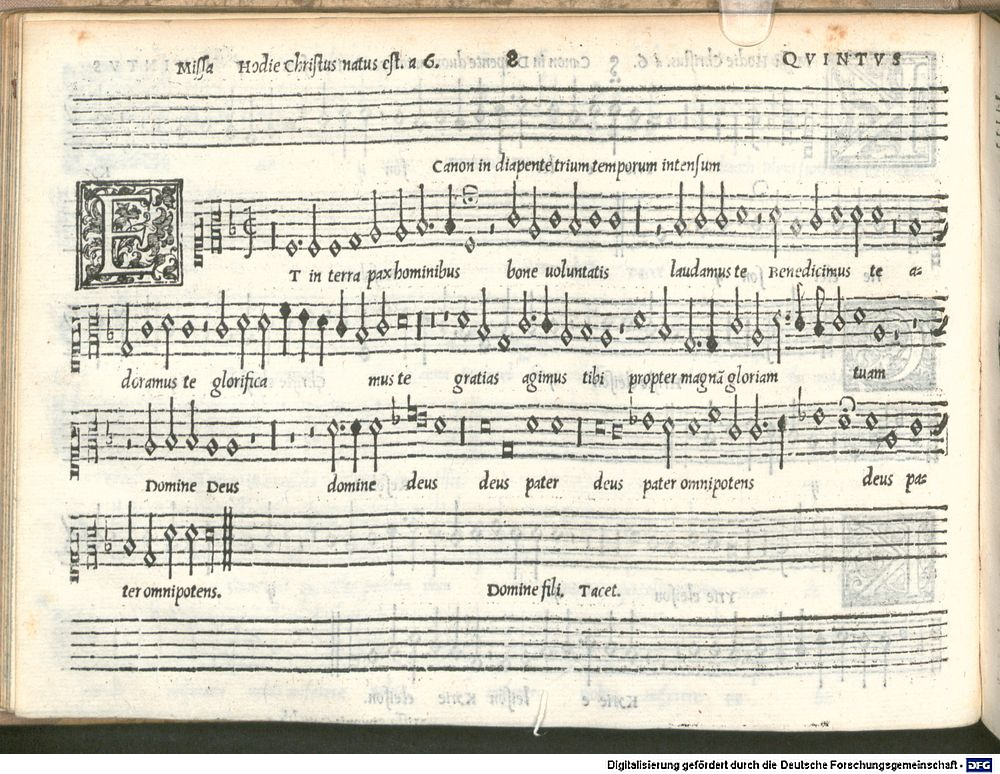 Missa Hodie Christus natus est. a 6. 8 QVINTVS
Canon in diapente trium temporum intensum
ET in terra pax hominibus bone uoluntatis laudamus te Benedicimus te a=
doramus te glorifica mus te gratias agimus tibi propter magnā gloriam tuam
Domine Deus domine deus deus pater deus pater omnipotens deus pa=
ter omnipotens. Domine fili. Tacet.
Digitalisierung gefördert durch die Deutsche Forschungsgemeinschaft - DFG